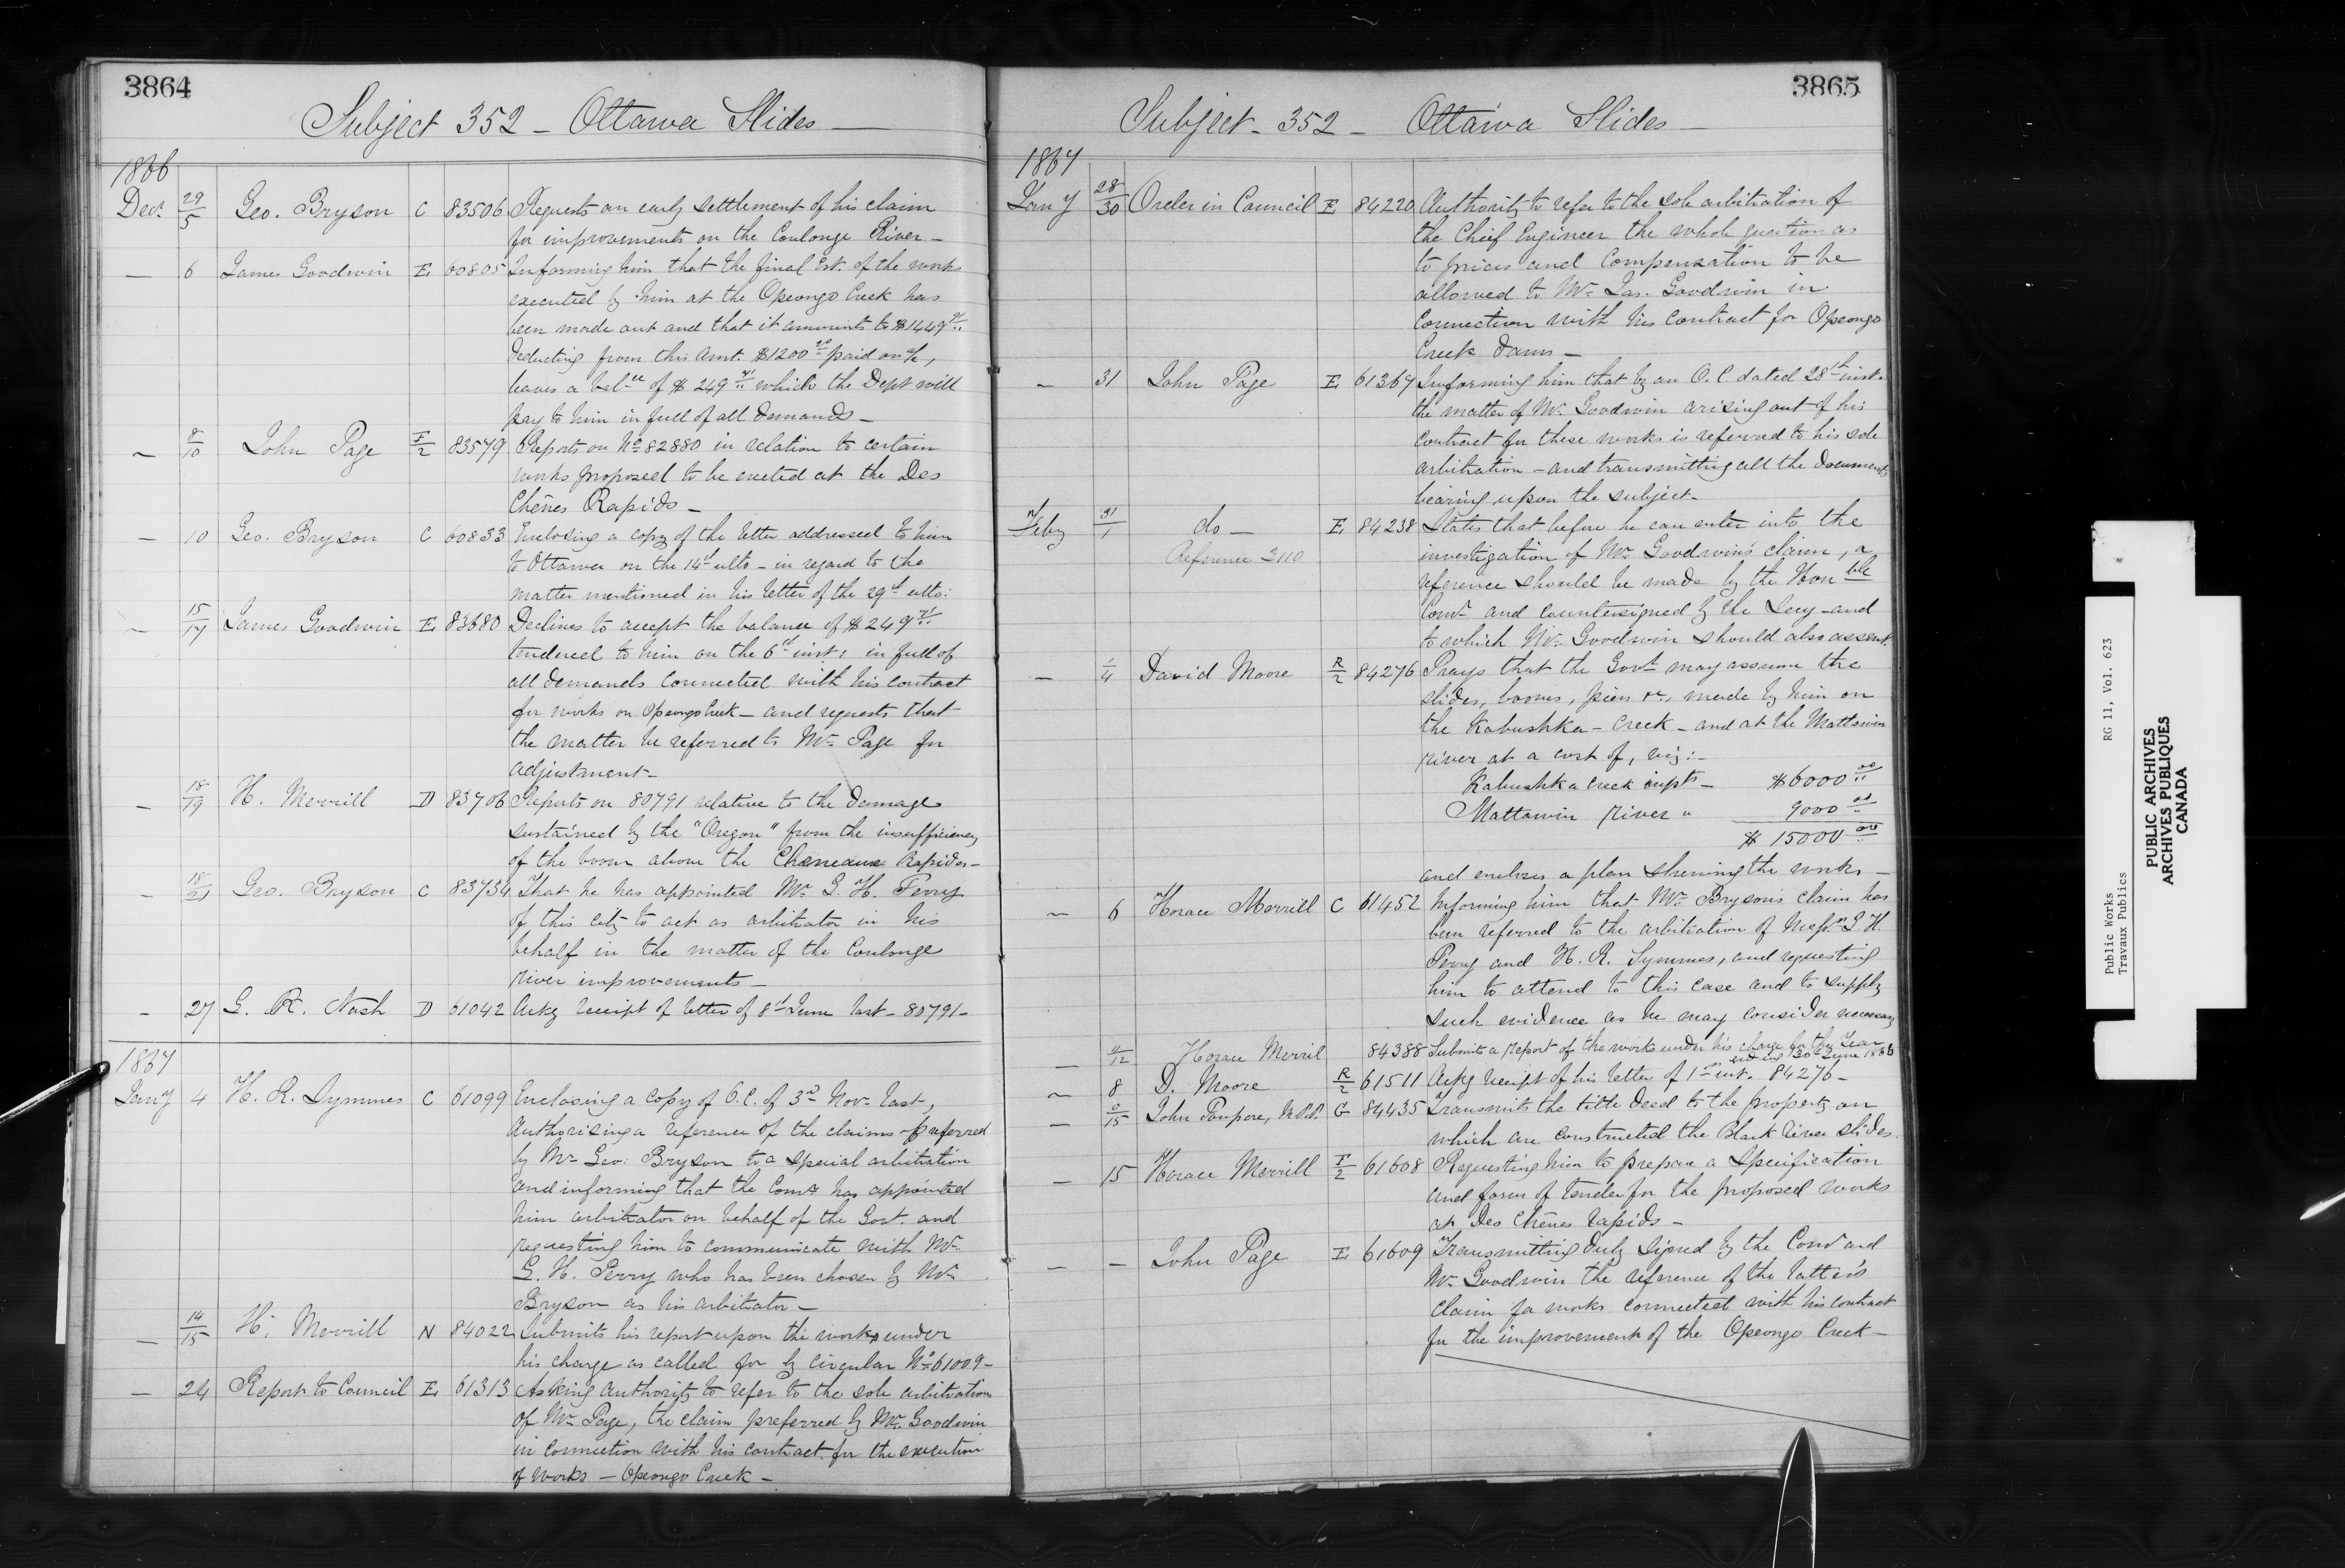 3864
Subject 352 - Ottawa Slides -
1866
Decr. 29/5 Geo. Bryson C 83506 Requests an early settlement of his claim
for improvements on the Coulonge River -
- 6 James Goodwin E 60805 Informing him that the final Est. of the works
executed by him at the Opeongo Creek has
been made out and that it amounts to $1449
Deducting from this amt. $1200 paid on a/c,
leaves a balce of $249 which the Dept will
pay to him in full of all demands -
- 8/10 John Page F/2 83579 Reports on No 82880 in relation to certain
works proposed to be erected at the Des
Chênes Rapids -
- 10 Geo. Bryson C 60833 Enclosing a copy of the letter addressed to him
to Ottawa on the 14th ulto - in regard to the
matter mentioned in his letter of the 29th ulto:
- 15/17 James Goodwin E 83680 Declines to accept the balance of $249
tendered to him on the 6th inst: in full of
all demands connected with his contract
for works on Opeongo Creek - and requests that
the matter be referred to Mr. Page for
adjustment -
- 18/19 H. Merrill D 83706 Reports on 80791 relative to the damage
sustained by the "Oregon" from the insufficiency
of the boom above the Cheneaux Rapids -
- 18/21 Geo. Bryson C 83734 That he has appointed Mr. G. H. Perry
of this city to act as arbitrator in his
behalf in the matter of the Coulonge
river improvements -
- 27 G. R. Nash D 61042 Ackg receipt of letter of 8th June last - 80791 -
1867
Jany 4 H. R. Symmes C 61099 Enclosing a copy of O.C. of 3rd Novr. last,
Authorising a reference of the claims preferred
by Mr Geo: Bryson to a special arbitration
and informing that the Comr. has appointed
him arbitrator on behalf of the Govt. and
requesting him to communicate with Mr.
G. H. Perry who has been chosen by Mr.
Bryson as his arbitrator -
- 14/15 H. Merrill N 84022 Submits his report upon the works under
his charge as called for by Circular No 61009 -
- 24 Report to Council E 61313 Asking authority to refer to the sole arbitration
of Mr. Page, the claim preferred by Mr. Goodwin
in connection with his contract for the execution
of works - Opeongo Creek -
3865
Subject - 352 - Ottawa Slides -
1867
Jany 28/30 Order in Council E 84220 Authority to refer to the sole arbitration of
the Chief Engineer the whole question as
to prices and compensation to be
allowed to Mr. Jas. Goodwin in
connection with his contract for Opeongo
Creek Dams -
- 31 John Page E 61367 Informing him that by an O.C. dated 28th inst.
the matter of Mr. Goodwin arising out of his
contract for these works is referred to his sole
arbitration - and transmitting all the documents
bearing upon the subject -
Feby 31/1 do - E 84238 States that before he can enter into the
Reference 3110
investigation of Mr. Goodwin's claim, a
reference should be made by the Honble
Comr. and countersigned by the Secy - and
to which Mr. Goodwin should also assent.
- 1/4 David Moore R/2 84276 Prays that the Govt may assume the
slides, booms, piers &c, made by him on
the Kabushka - Creek - and at the Mattawin
river at a cost of, viz: -
Kabushka Creek impts - $6000 00
Mattawin River " 9000 00
$ 15000 00
and encloses a plan shewing the works -
- 6 Horace Merrill C 61452 Informing him that Mr. Bryson's claim has
been referred to the arbitration of Messrs. G. H.
Perry and H. R. Symmes, and requesting
him to attend to this case and to supply
such evidence as he may consider necessary
- 11/12 Horace Merril 84388 Submits a report of the works under his charge for the Year
ending 30th June 1866
- 8 D. Moore R/2 61511 Ackg receipt of his letter of 1st inst. 84276 -
- 9/15 John Poupore, M.P.P. G 84435 Transmits the title deed to the property on
which are constructed the Black River slides.
- 15 Horace Merrill F/2 61608 Requesting him to prepare a Specification
and form of tender for the proposed works
at Des Chênes Rapids -
- - John Page E 61609 Transmitting duly signed by the Comr and
Mr. Goodwin the reference of the latter's
claim for works connected with his contract
for the improvement of the Opeongo Creek -
Public Works RG 11, Vol. 623
Travaux Publics
PUBLIC ARCHIVES
ARCHIVES PUBLIQUES
CANADA